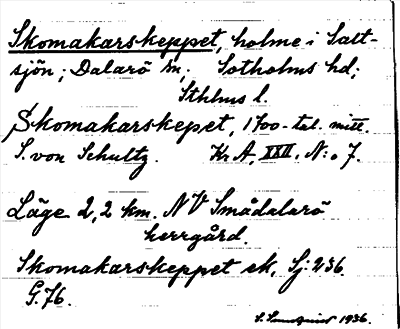 Skomakarskeppet, holme i Salt-
sjön; Dalarö sn, Sotholms hd;
Sthlms l.
Skomakarskepet, 1700-tal. mitt.
S. von Schultz. Kr A, XXII. N:o 7.
Läge 2,2 km. NV Smådalarö
herrgård.
Skomakarskeppet ek, Sj: 236.
G. 76.
1936.